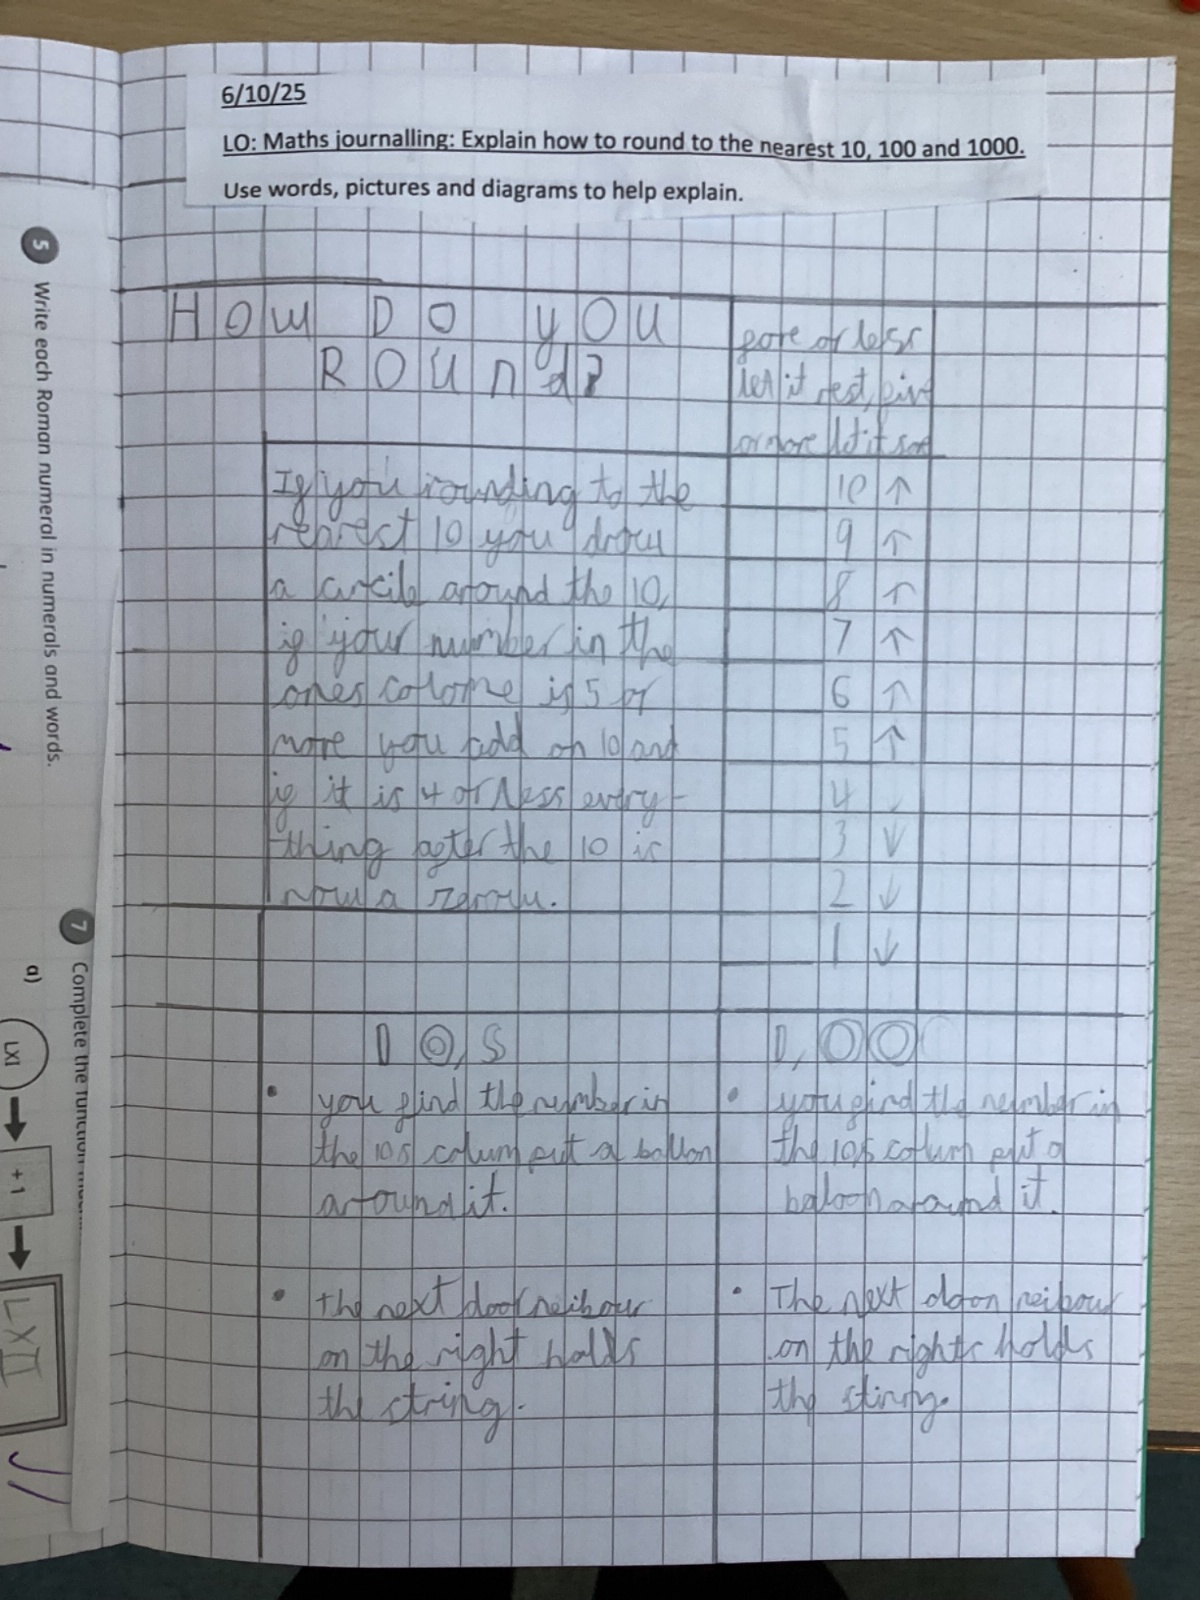 6/10/25
LO: Maths journalling: Explain how to round to the nearest 10, 100 and 1000.
Use words, pictures and diagrams to help explain.
HOW DO yOU
ROUnd?
If you rounding to the
nearest 10 you drow
a circile around the 10,
if your number in the
ones colome is 5 or
more you add on 10 and
if it is 4 or less every-
thing after the 10 is
now a
fore or less
let it rest, five
or more let it
10 ↑
9 ↑
8 ↑
7 ↑
6 ↑
5 ↑
4
3 ↓
2 ↓
1 ↓
you find the number in
the 10s colum put a ballon
around it.
the next door neibour
on the right holds
the string.
you find the number in
the 10s colum put a
baloon around it.
The next doon neibour
on the rights holds
the
5 Write each Roman numeral in numerals and words.
7 Complete the function
a)
LXI
+ 1
LXII